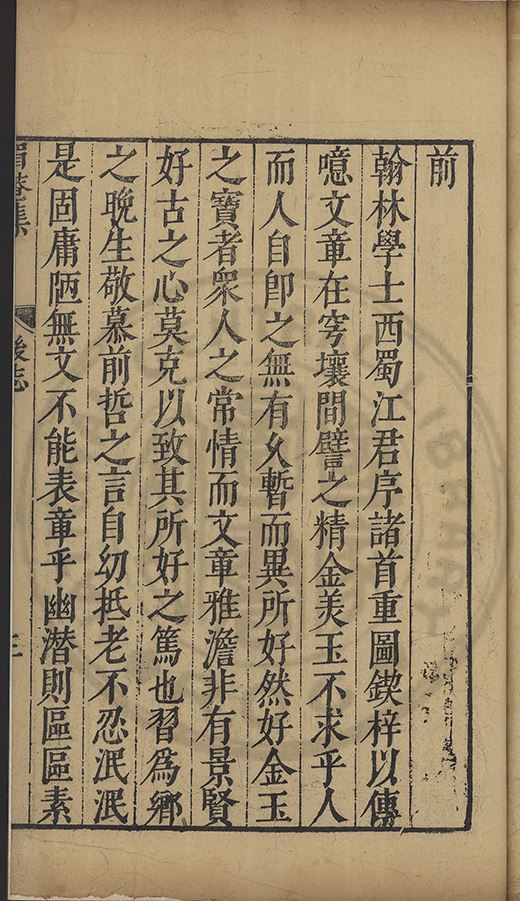 前
翰林學士西蜀江君序諸首重圖鍥梓以傳
噫文章在穹壤間譬之精金美玉不求乎人
而人自卽之無有久暫而異所好然好金玉
之寶者衆人之常情而文章雅澹非有景賢
好古之心莫克以致其所好之篤也習爲鄉
之晩生敬慕前哲之言自幼抵老不忍泯泯
是固庸陋無文不能表章乎幽潜則區區素
眉菴集
後志
三